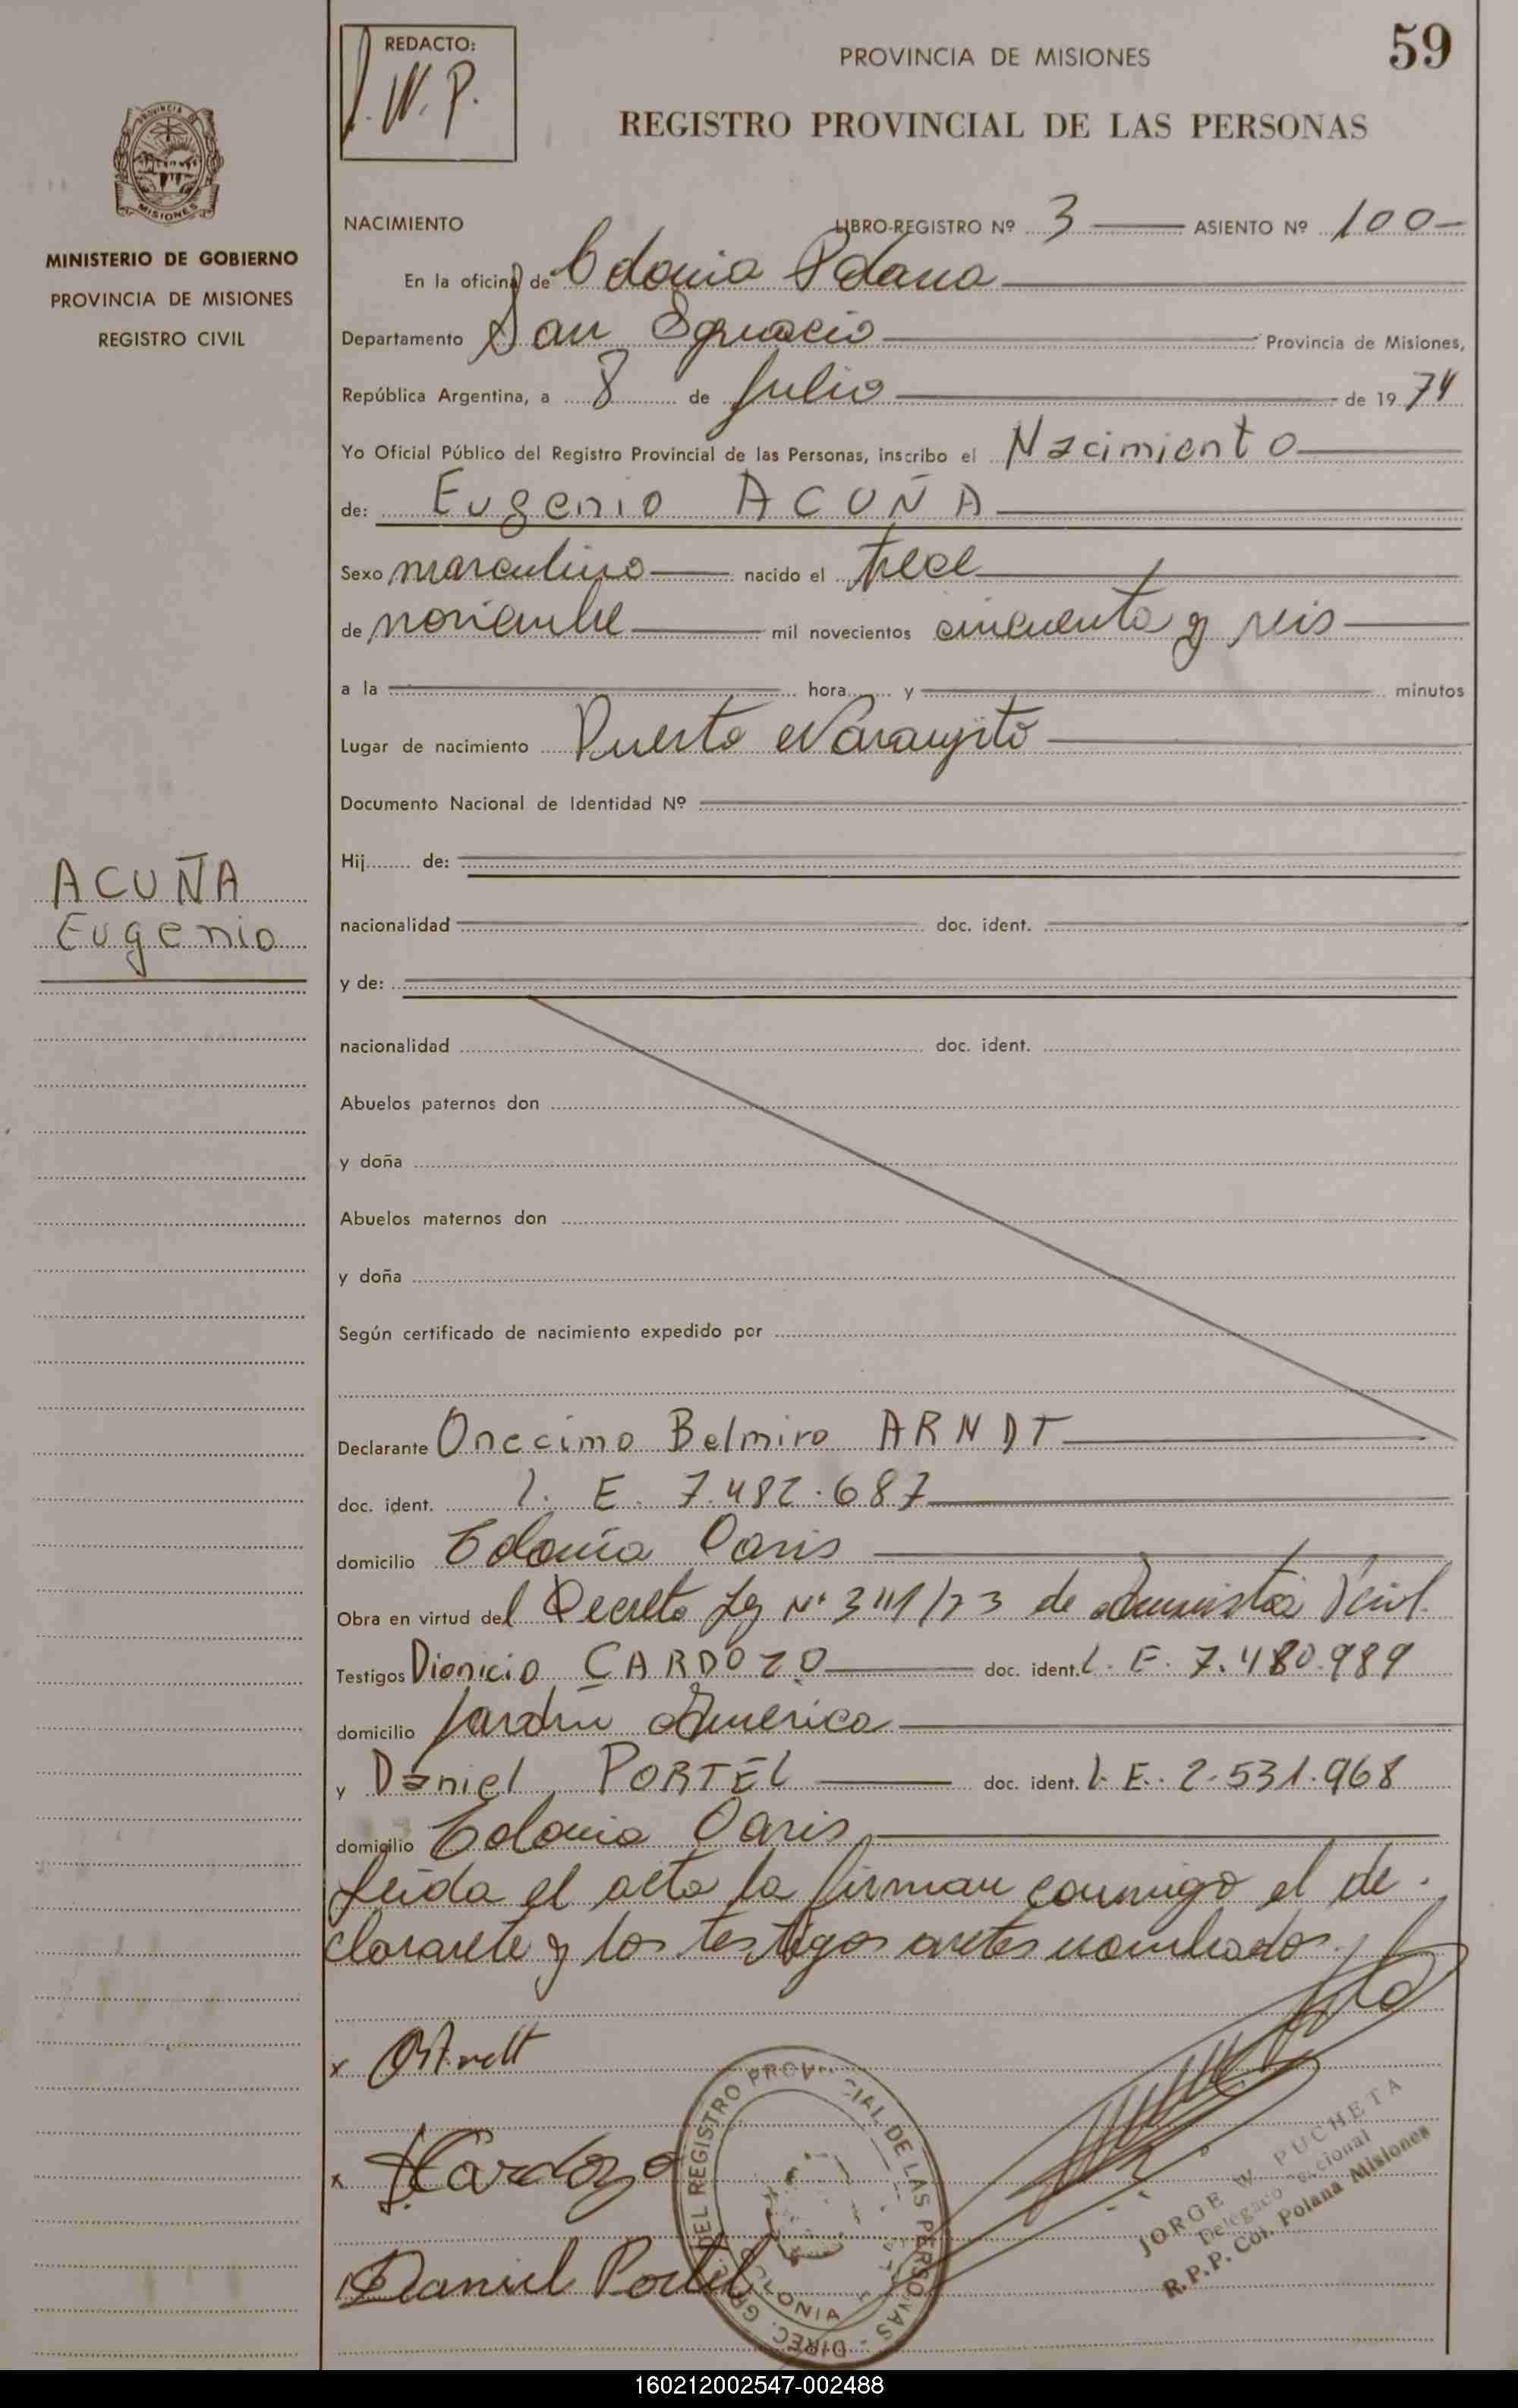 REDACTO:
J. W. P.
PROVINCIA DE MISIONES
59
REGISTRO PROVINCIAL DE LAS PERSONAS
MISIONES
MINISTERIO DE GOBIERNO
PROVINCIA DE MISIONES
REGISTRO CIVIL
NACIMIENTO LIBRO-REGISTRO Nº 3 ASIENTO Nº 100
En la oficina de Colonia Polana
Departamento San Ignacio Provincia de Misiones,
República Argentina, a 8 de Julio de 1974
Yo Oficial Público del Registro Provincial de las Personas, inscribo el Nacimiento
de: Eugenio ACUÑA
Sexo masculino nacido el trece
de noviembre mil novecientos cincuenta y seis
a la hora y minutos
Lugar de nacimiento Puerto Naranjito
Documento Nacional de Identidad Nº
ACUÑA
Eugenio
Hij de:
nacionalidad doc. ident.
y de:
nacionalidad doc. ident.
Abuelos paternos don
y doña
Abuelos maternos don
y doña
Según certificado de nacimiento expedido por
Declarante Onecimo Belmiro ARNDT
doc. ident. L. E. 7.482.687
domicilio Colonia Oasis
Obra en virtud del Decreto Ley Nº 3111/73 de Amnistía
Testigos Dionicio CARDOZO doc. ident. L. E. 7.480.989
domicilio Jardín América
y Daniel PORTEL doc. ident. L. E. 2.531.968
domicilio Colonia Oasis
Leída el acta la firman conmigo el de-
clarante y los testigos antes nombrados.
x
x Cardozo
Daniel Portel
DIREC. GRAL. DEL REGISTRO PROVINCIAL DE LAS PERSONAS
COLONIA
JORGE W. PUCHETA
Delegado
R.P.P. Col. Polana Misiones
160212002547-002488